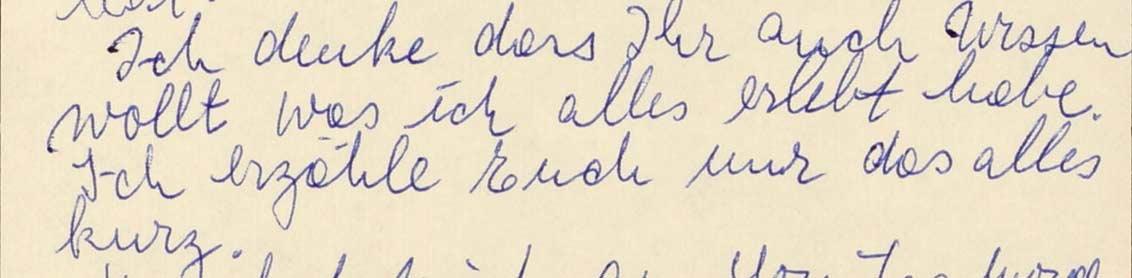 Ich denke dass Ihr auch Wissen
wollt was ich alles erlebt habe.
Ich erzähle Euch nur das alles
kurz.